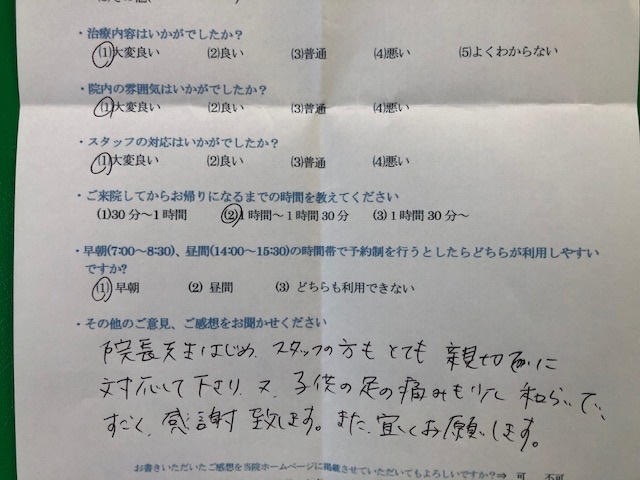 ・治療内容はいかがでしたか？
(1)大変良い (2)良い (3)普通 (4)悪い (5)よくわからない
・院内の雰囲気はいかがでしたか？
(1)大変良い (2)良い (3)普通 (4)悪い
・スタッフの対応はいかがでしたか？
(1)大変良い (2)良い (3)普通 (4)悪い
・ご来院してからお帰りになるまでの時間を教えてください
(1)30分～1時間 (2)1時間～1時間30分 (3)1時間30分～
・早朝(7:00～8:30)、昼間(14:00～15:30)の時間帯で予約制を行うとしたらどちらが利用しやすい
ですか?
(1) 早朝 (2) 昼間 (3) どちらも利用できない
・その他のご意見、ご感想をお聞かせください
院長先生はじめ、スタッフの方もとても親切に
対応して下さり、又、子供の足の痛みも少し和らいで、
すごく、感謝致します。また、宜しくお願いします。
お書きいただいたご感想を当院ホームページに掲載させていただいてもよろしいですか？⇒ 可 不可